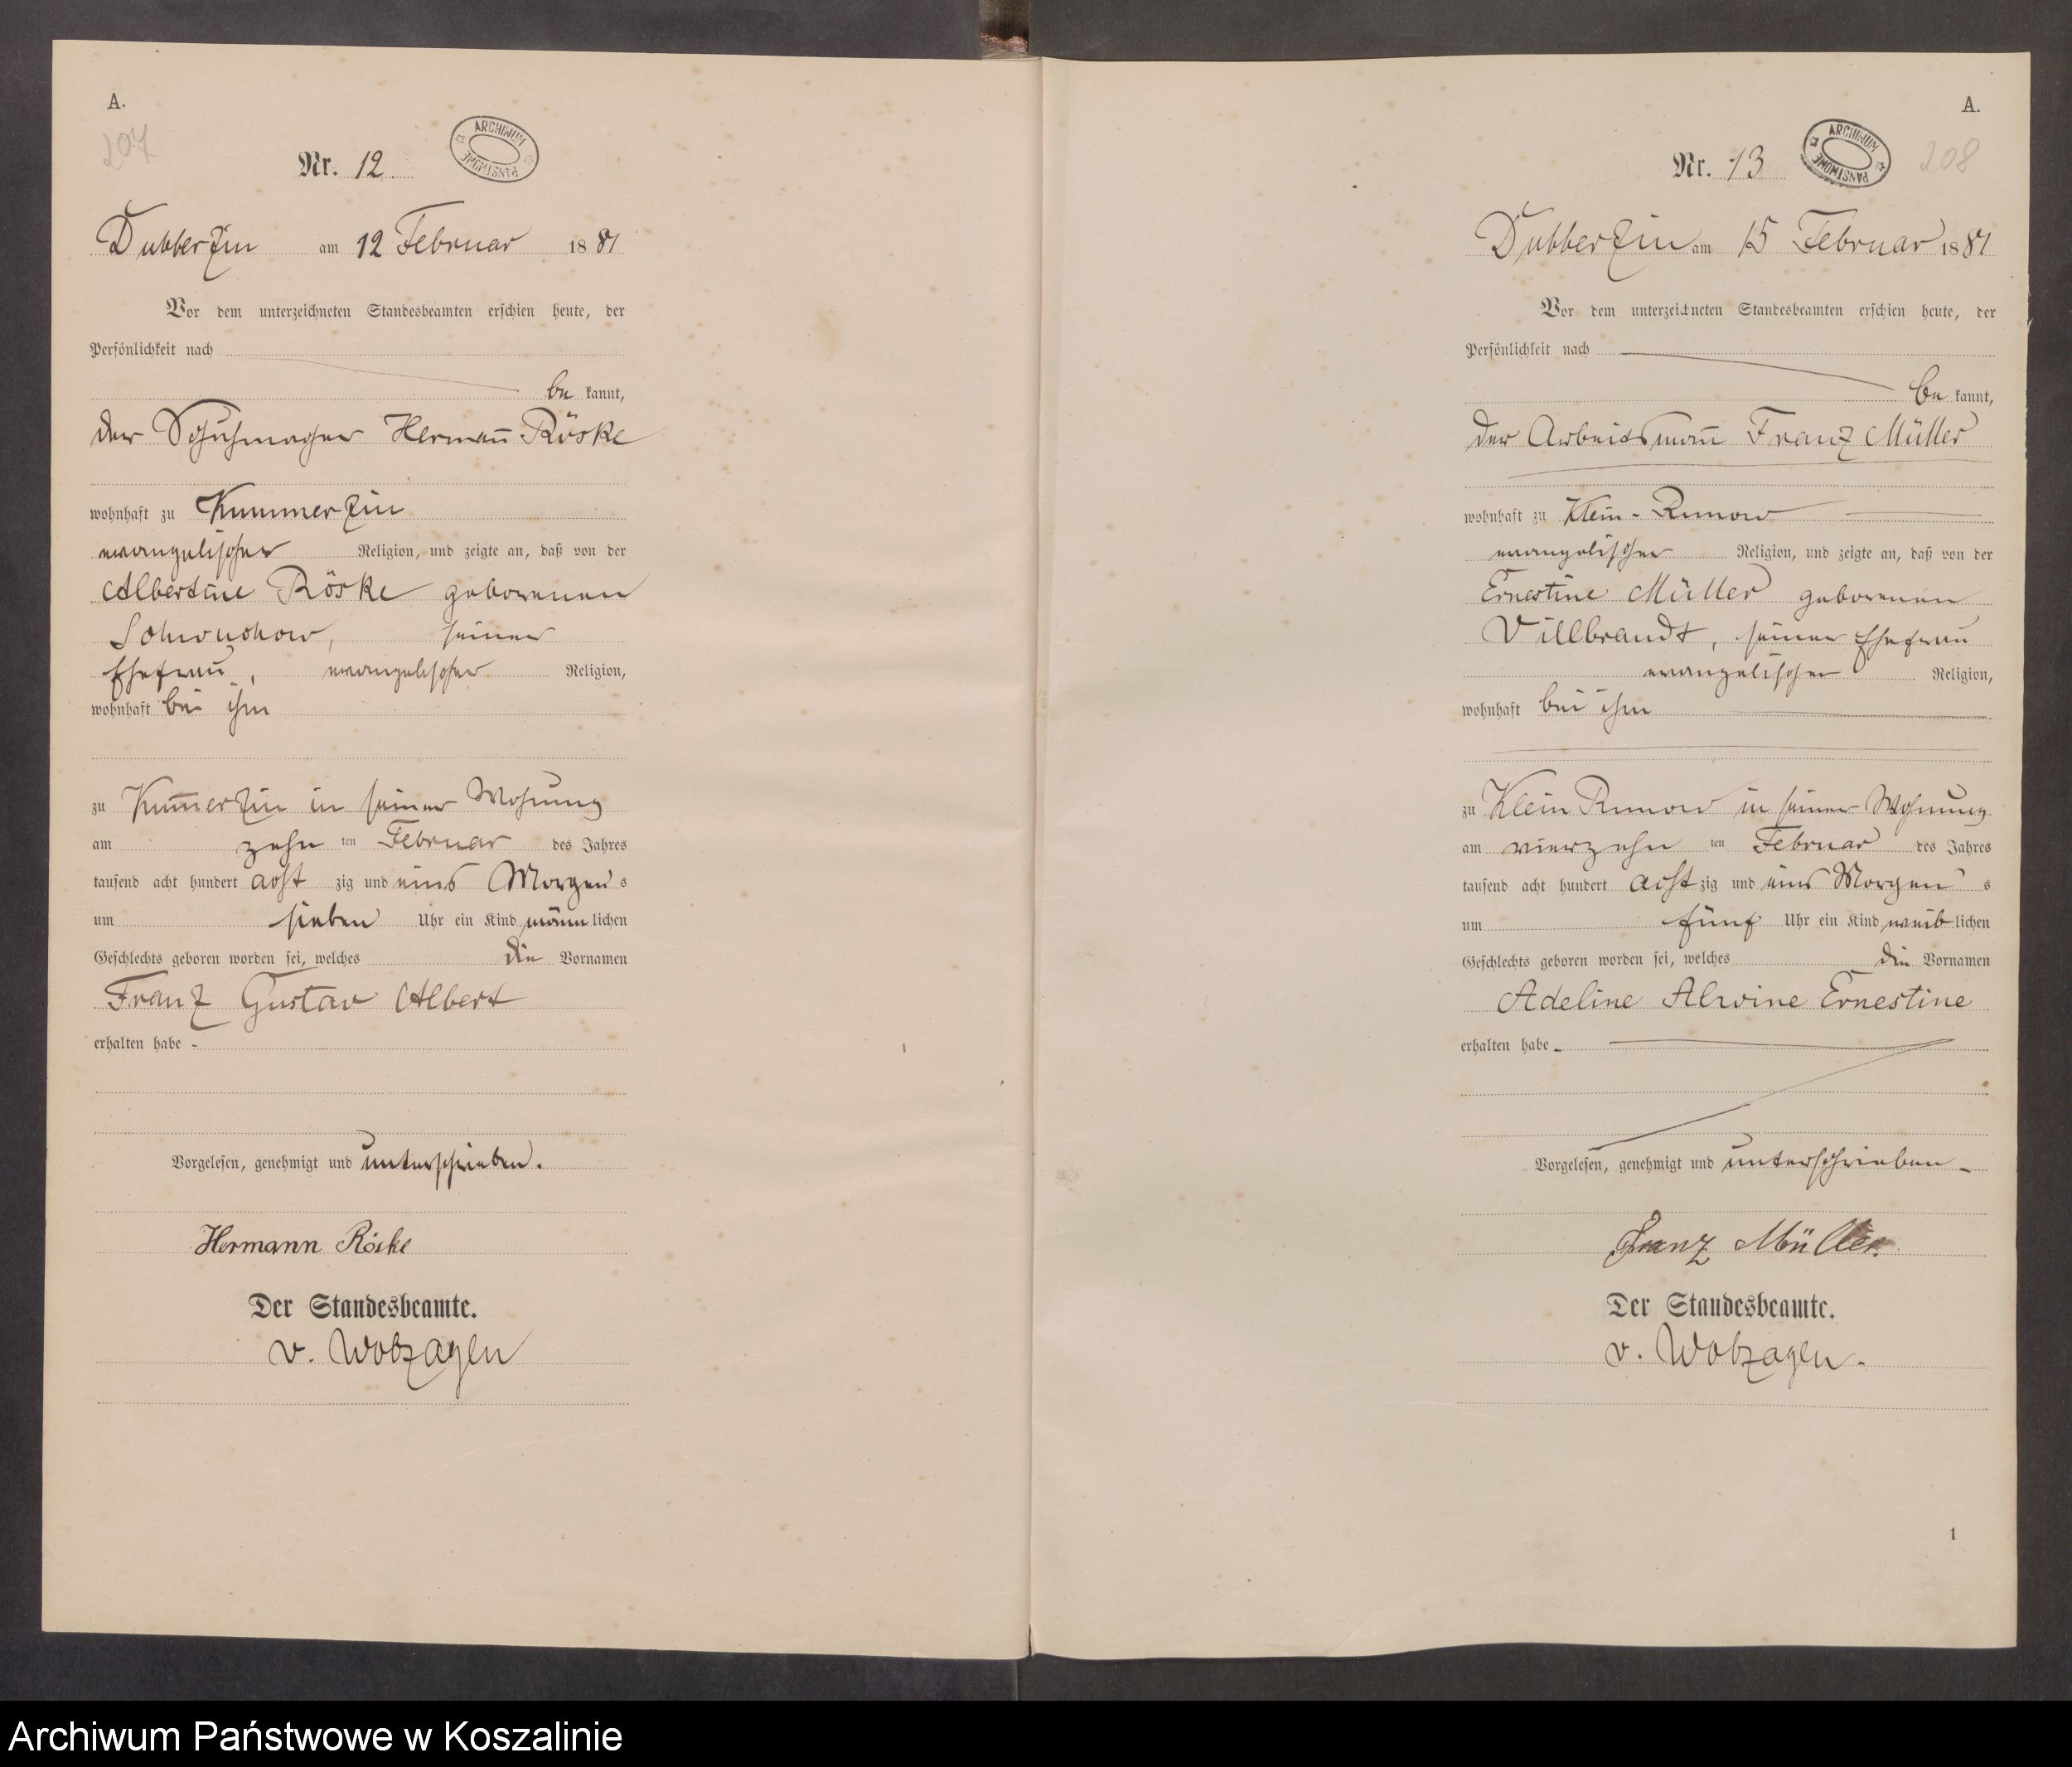 A.
207
Nr. 12.
ARCHIWUM PAŃSTWOWE
Dubberzin am 12 Februar 1881
Vor dem unterzeichneten Standesbeamten erschien heute, der
Persönlichkeit nach
be kannt,
der Schuhmacher Hermañ Röske
wohnhaft zu Kummerzin
evangelischer Religion, und zeigte an, daß von der
Albertine Röske geborenen
seiner
Ehefrau, evangelischer Religion,
wohnhaft bei ihm
zu Kum̄erzin in seiner Wohnung
am zehn ten Februar des Jahres
tausend acht hundert acht zig und eins Morgens
um sieben Uhr ein Kind männlichen
Geschlechts geboren worden sei, welches die Vornamen
Franz Gustav Albert
erhalten habe -
Vorgelesen, genehmigt und unterschrieben.
Hermann Röske
Der Standesbeamte.
v. Wobzagen
A.
208
Nr. 13
ARCHIWUM PAŃSTWOWE
Dubberzin am 15 Februar 1881
Vor dem unterzeichneten Standesbeamten erschien heute, der
Persönlichkeit nach
be kannt,
der Arbeitsmañ Franz Müller
wohnhaft zu Klein-Runow
evangelischer Religion, und zeigte an, daß von der
Ernestine Müller geborenen
Villbrandt, seiner Ehefrau
evangelischer Religion,
wohnhaft bei ihm
zu Klein Runow in seiner Wohnung
am vierzehn ten Februar des Jahres
tausend acht hundert acht zig und eins Morgens
um fünf Uhr ein Kind weiblichen
Geschlechts geboren worden sei, welches die Vornamen
Adeline Alwine Ernestine
erhalten habe -
Vorgelesen, genehmigt und unterschrieben -
Franz Müller.
Der Standesbeamte.
v. Wobzagen.
1
Archiwum Państwowe w Koszalinie